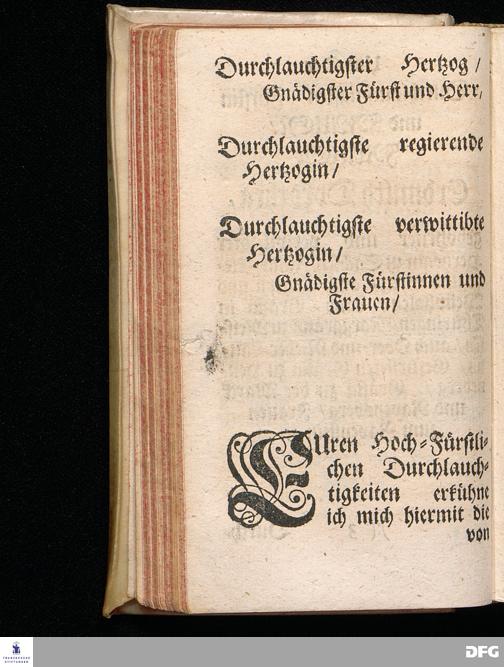 Durchlauchtigster Hertzog /
Gnädigster Fürst und Herr,
Durchlauchtigste regierende
Hertzogin /
Durchlauchtigste verwittibte
Hertzogin /
Gnädigste Fürstinnen und
Frauen /
EUren Hoch-Fürstli-
chen Durchlauch-
tigkeiten erkühne
ich mich hiermit die
von
FRANCKESCHE
STIFTUNGEN
DFG